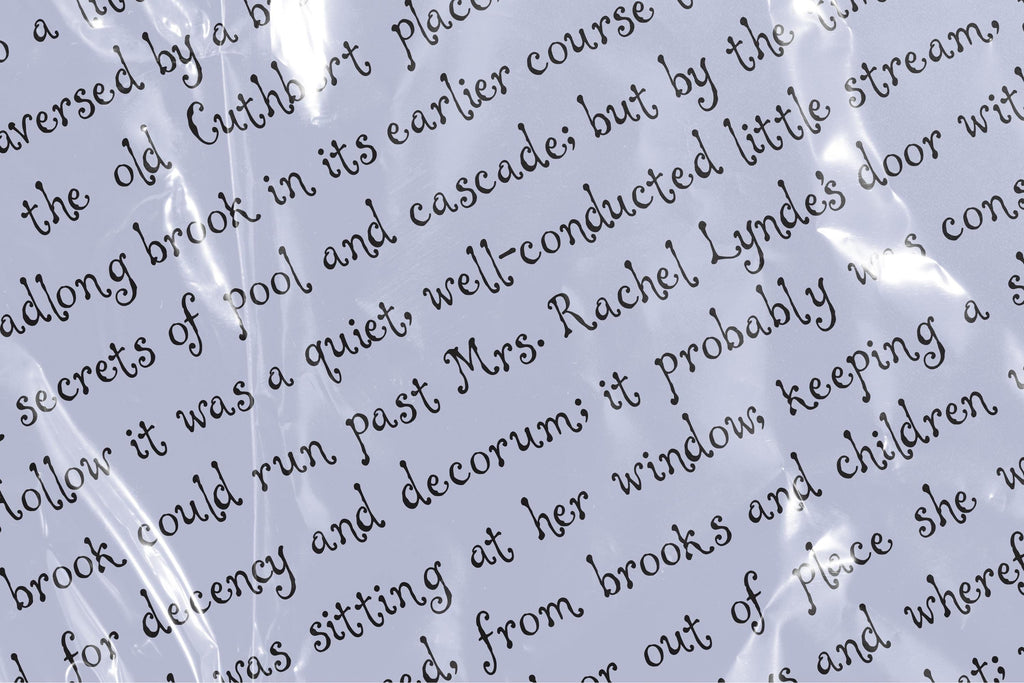 a
aversed by a
the old Cuthbert
adlong brook in its earlier course
secrets of pool and cascade; but by the
Hollow it was a quiet, well-conducted little stream,
brook could run past Mrs. Rachel Lynde's door
for decency and decorum; it probably was
was sitting at her window, keeping a
from brooks and children
out of place she
and